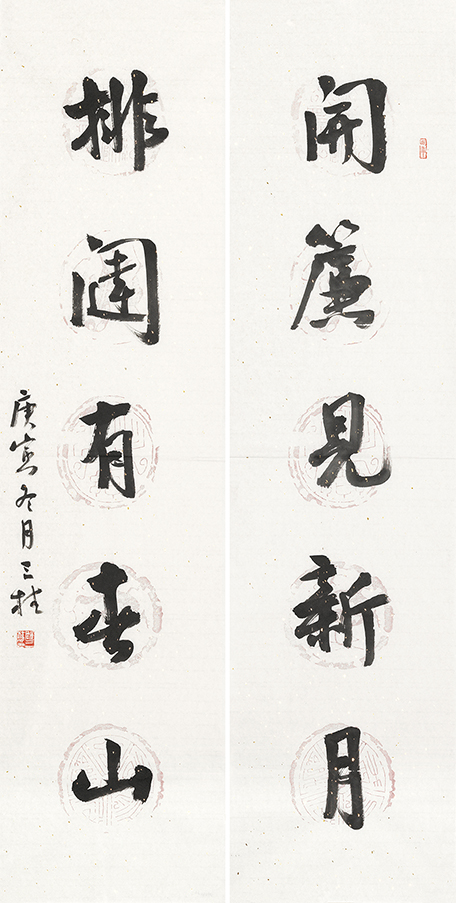 開簾見新月
排闥有春山
庚寅冬月三柱